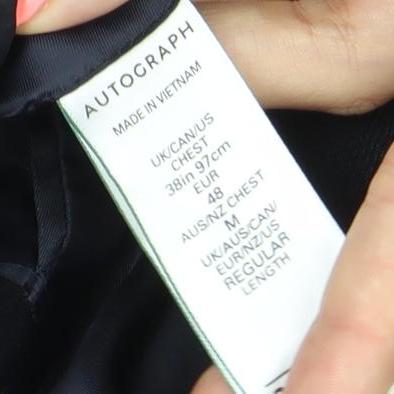 AUTOGRAPH
MADE IN VIETNAM
UK/CAN/US
CHEST
38in 97cm
EUR
48
AUS/NZ CHEST
M
UK/AUS/CAN/
EUR/NZ/US
REGULAR
LENGTH